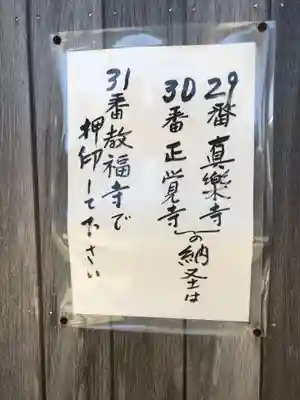 29番真樂寺
30番正覚寺 の納圣は
31番教福寺で
押印して下さい